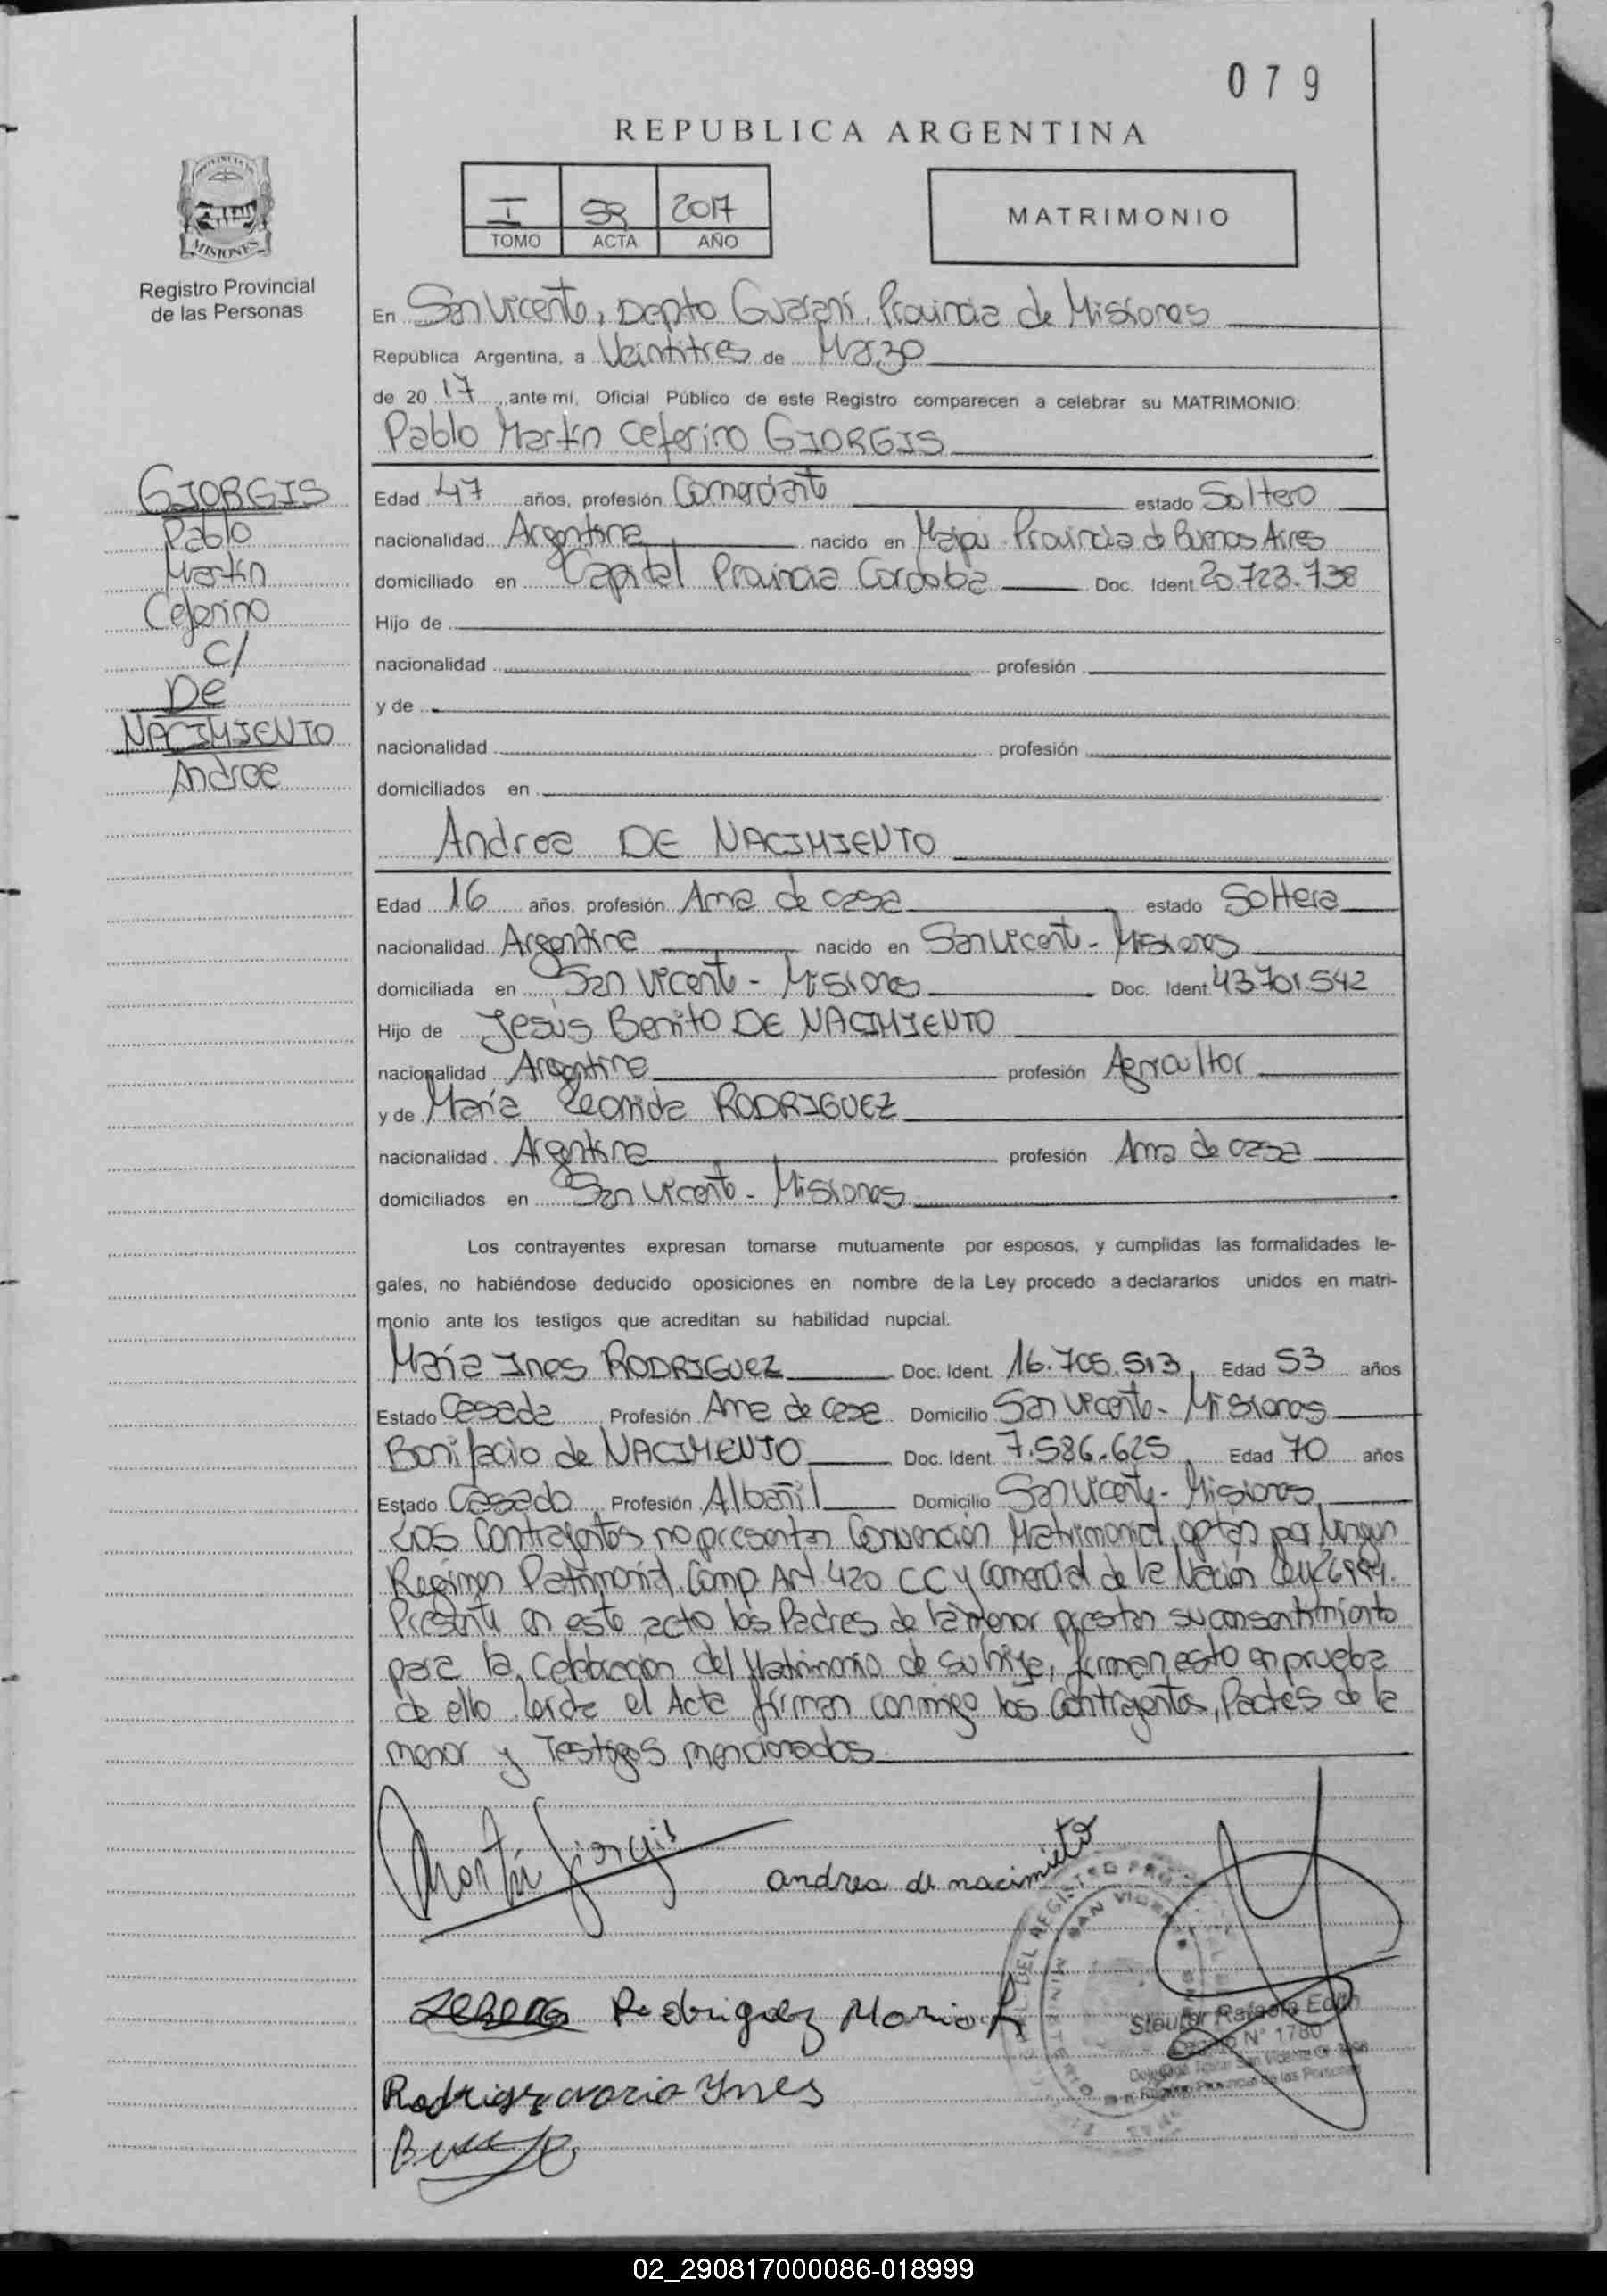 079
REPUBLICA ARGENTINA
I 59 2017
TOMO ACTA AÑO
MATRIMONIO
MISIONES
Registro Provincial
de las Personas
En San Vicente, Depto Guaraní, Provincia de Misiones
República Argentina, a Veintitres de Marzo
de 20 17 ante mí, Oficial Público de este Registro comparecen a celebrar su MATRIMONIO:
Pablo Martín Ceferino GIORGIS
GIORGIS
Pablo
Martín
Ceferino
C/
DE
NACIMIENTO
Andrea
Edad 47 años, profesión Comerciante estado Soltero
nacionalidad Argentina nacido en Maipú Provincia de Buenos Aires
domiciliado en Capital Provincia Cordoba Doc. Ident. 20.723.738
Hijo de
nacionalidad profesión
y de
nacionalidad profesión
domiciliados en
Andrea DE NACIMIENTO
Edad 16 años, profesión Ama de casa estado Soltera
nacionalidad Argentina nacido en San Vicente - Misiones
domiciliada en San Vicente - Misiones Doc. Ident. 43.701.542
Hijo de Jesús Benito DE NACIMIENTO
nacionalidad Argentina profesión Agricultor
y de María Leonida RODRIGUEZ
nacionalidad Argentina profesión Ama de casa
domiciliados en San Vicente - Misiones
Los contrayentes expresan tomarse mutuamente por esposos, y cumplidas las formalidades le-
gales, no habiéndose deducido oposiciones en nombre de la Ley procedo a declararlos unidos en matri-
monio ante los testigos que acreditan su habilidad nupcial.
María Ines RODRIGUEZ Doc. Ident. 16.705.513 Edad 53 años
Estado Casada Profesión Ama de Casa Domicilio San Vicente - Misiones
Bonifacio de NACIMENTO Doc. Ident. 7.586.625 Edad 70 años
Estado Casado Profesión Albañil Domicilio San Vicente - Misiones
Los Contrayentes no presentan Convención Matrimonial, optan por Ningun
Regimen Patrimonial. Comp Art 420 CC y Comercial de la Nación Ley 26994.
Presente en este acto los Padres de la menor prestan su consentimiento
para la Celebración del Matrimonio de su hija, firman esto en prueba
de ello. Leída el Acta firman conmigo los Contrayentes, Padres de la
menor y Testigos mencionados
Martín Giorgis
andrea de nacimieto
Rodriguez Maria L
Rodriguez maria Ynes
SAN VICENTE
Rafaela Edith
N° 1780
Registro Provincial de las Personas
02_290817000086-018999